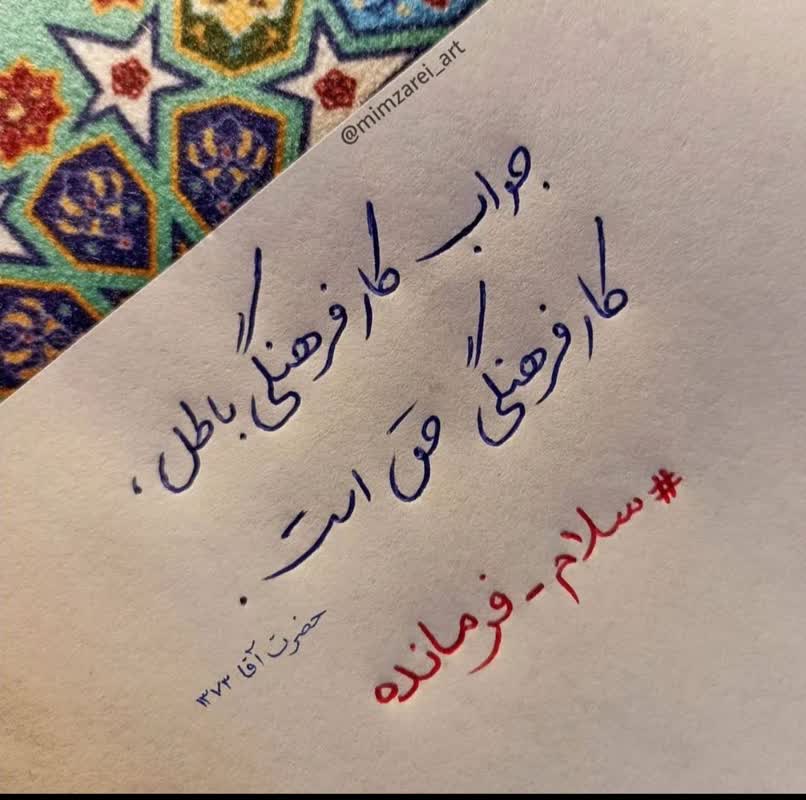 @mimzarei_art
جواب کار فرهنگی باطل،
کار فرهنگی حق است.
#سلام-فرمانده
حضرت آقا ۱۳۷۳